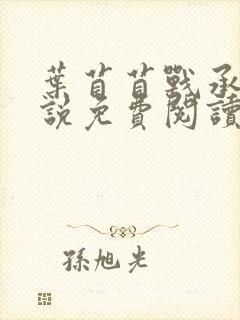 葉苜苜戰承
說免費閱讀
孫旭光